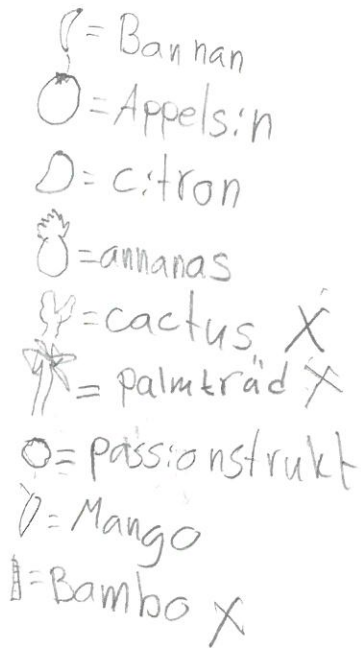 = Bannan
= Appelsin
= citron
= annanas
= cactus X
= palmträd X
= passionsfrukt
= Mango
= Bambo X